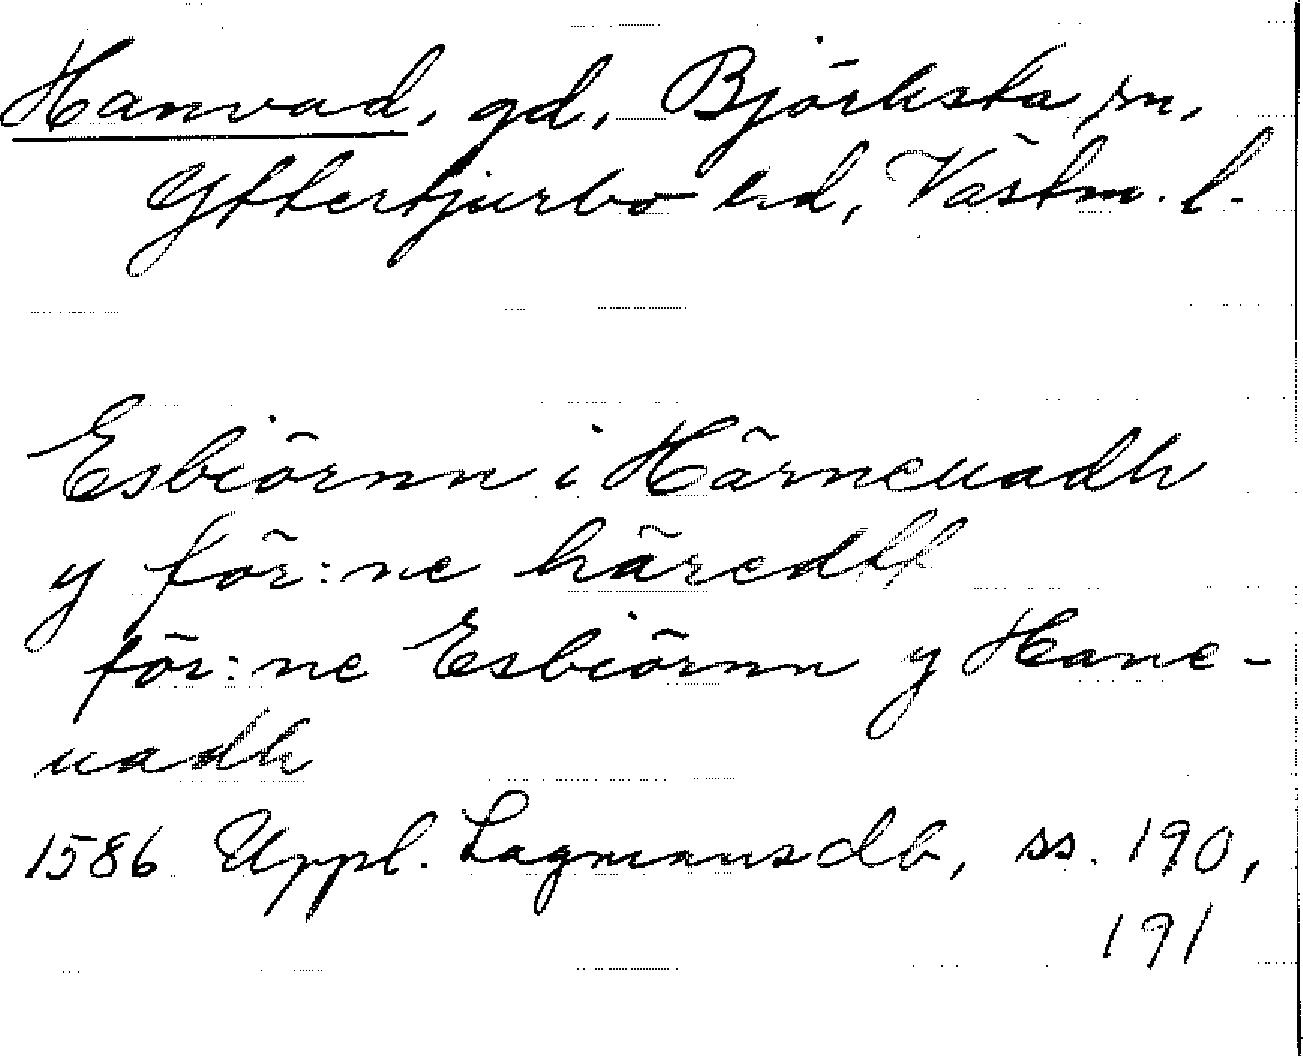 Hanvad, gd, Björksta sn,
Yttertjurbo hd, Västm. l.
Esbiörnn i Härneuadh
y för:ne häredtt
för:ne Esbiörnn y Hane-
uadh
1586 Uppl. Lagmansdb, ss. 190,
191